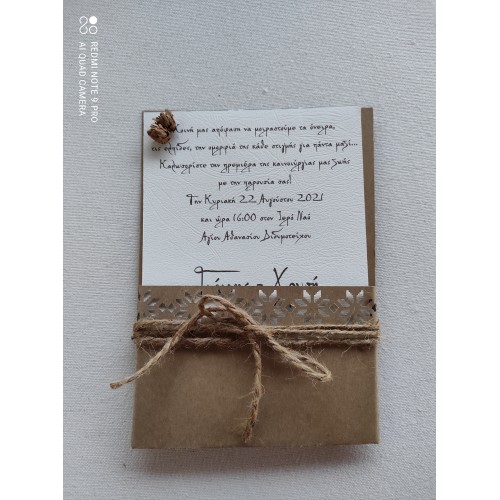 REDMI NOTE 9 PRO
AI QUAD CAMERA
Κοινή μας απόφαση να μοιραστούμε τα όνειρα,
τις ελπίδες, την ομορφιά της κάθε στιγμής για πάντα μαζί...
Καλωσορίστε την πρεμιέρα της καινούργιας μας ζωής
με την παρουσία σας!
Την Κυριακή 22 Αυγούστου 2021
και ώρα 16:00 στον Ιερό Ναό
Αγίου Αθανασίου Διδυμοτείχου